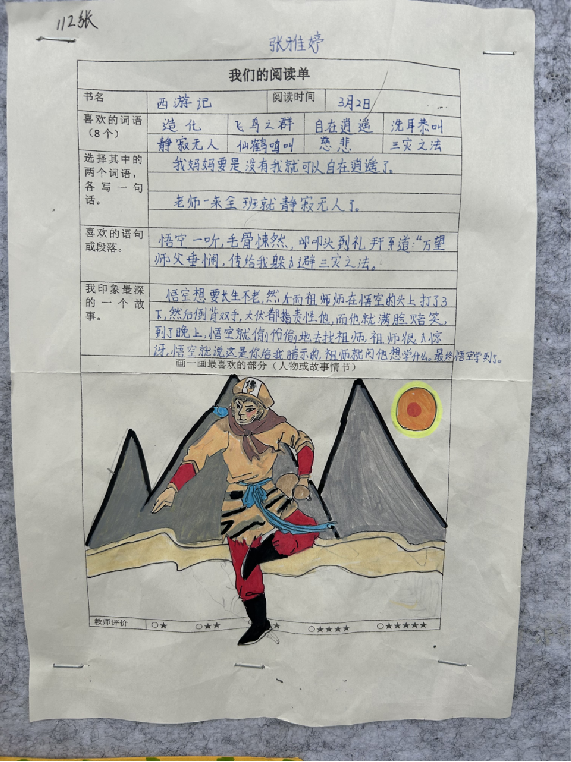 112张
张雅婷
我们的阅读单
书名 西游记 阅读时间 3月2日
喜欢的词语 造化 飞鸟之群 自在逍遥 洗耳恭叫
(8个) 静寂无人 仙鹤唷叫 慈悲 三灾之法
选择其中的 我妈妈要是没有我就可以自在逍遥了。
两个词语,
各写一句
话。 老师一来全班就静寂无人了。
喜欢的语句 悟空一听,毛骨悚然,叩叩头到礼拜道:“万望
或段落。 师父垂悯,传给我躲 避三灾之法。
我印象最深 悟空想要长生不老,然 而祖师师在悟空的头上打了3
的一个故 下,然后倒背双手,大伏都指责性他,而他就满脸 笑,
事。 到了晚上,悟空就偷偷偷地去找祖师,祖师很 惊
讶,悟空就说这是你给我暗示的,祖师就问他想学什么。最终悟空学到了。
画一画最喜欢的部分(人物或故事情书)
教师评价 ○★ ○★★ ★ ○★★★★ ○★★★★★